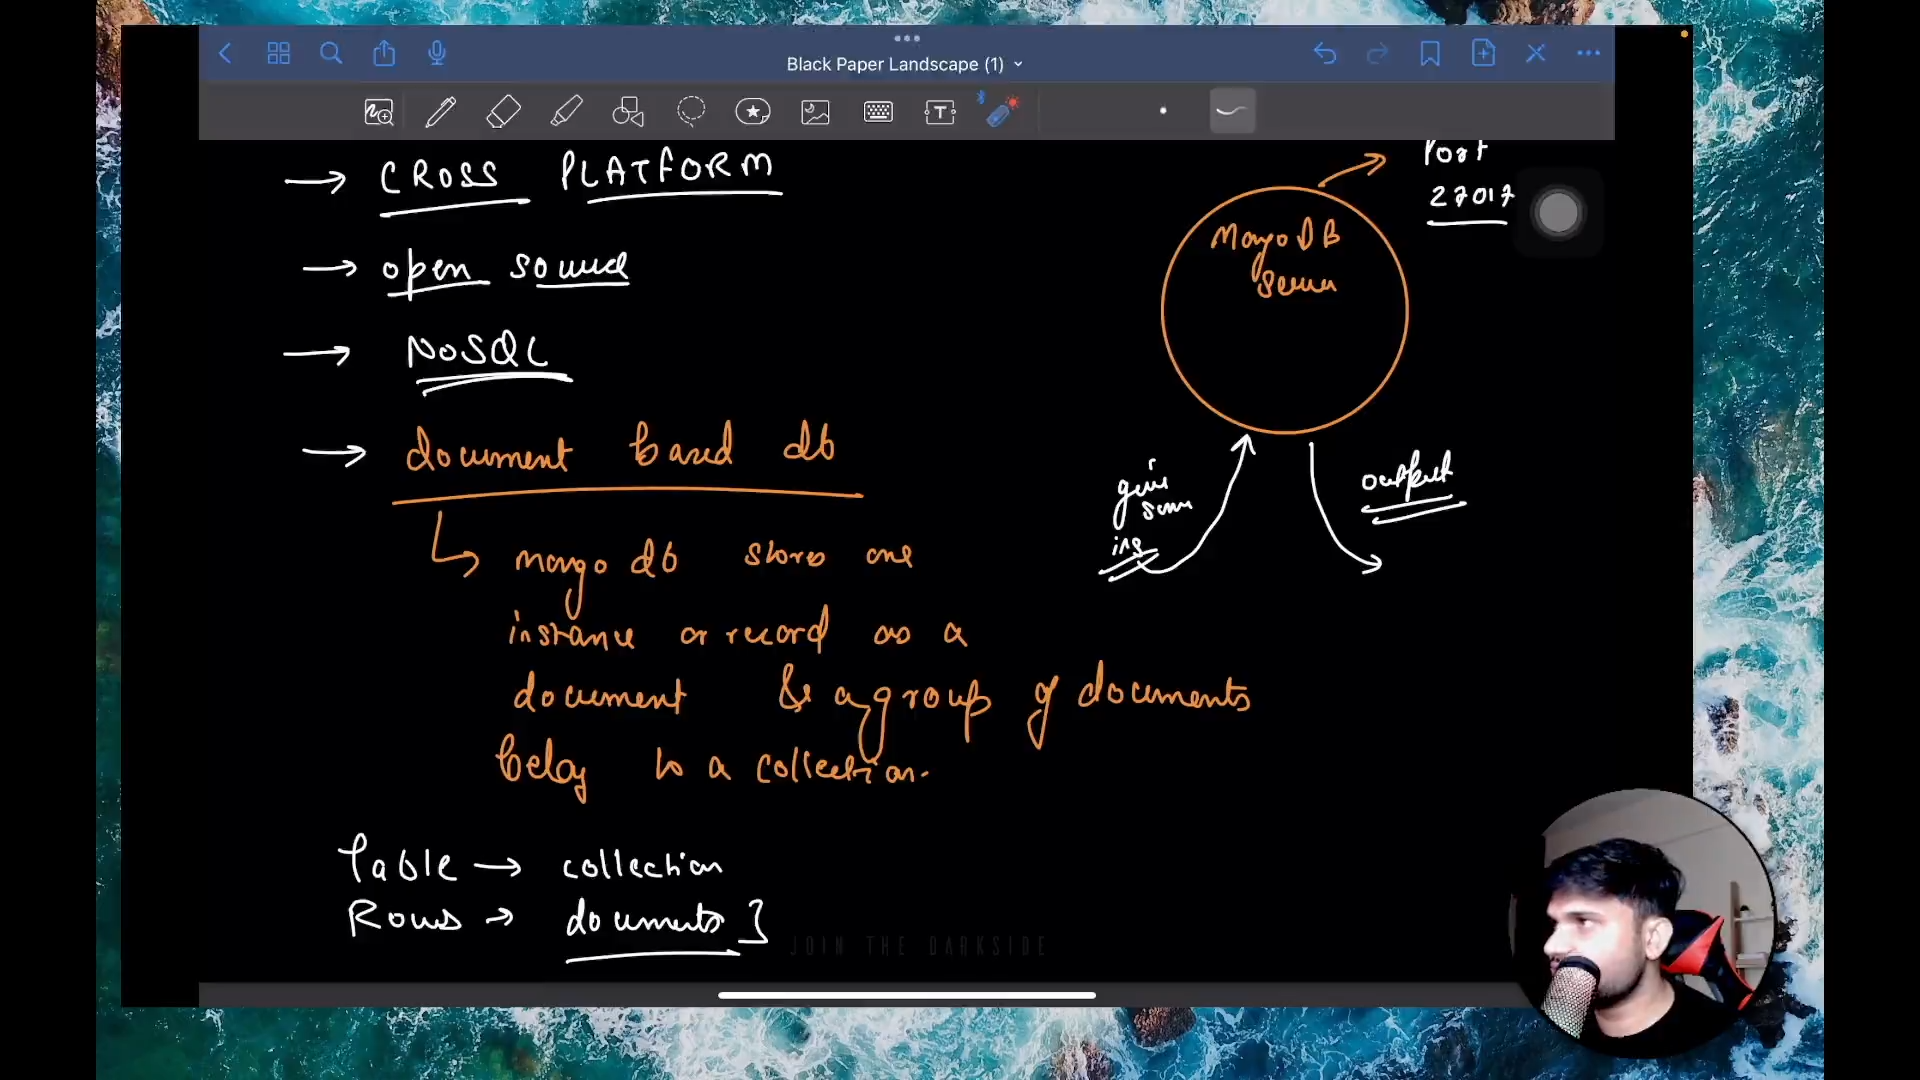 Black Paper Landscape (1)
→ CROSS PLATFORM
→ open source
→ NoSQL
→ document based db
↳ mongo db stores one
instance or record as a
document & a group of documents
belong to a collection.
Table → collection
Rows → documents ]
Port
27017
MongoDB
Server
give
some
ins
output
JOIN THE DARKSIDE